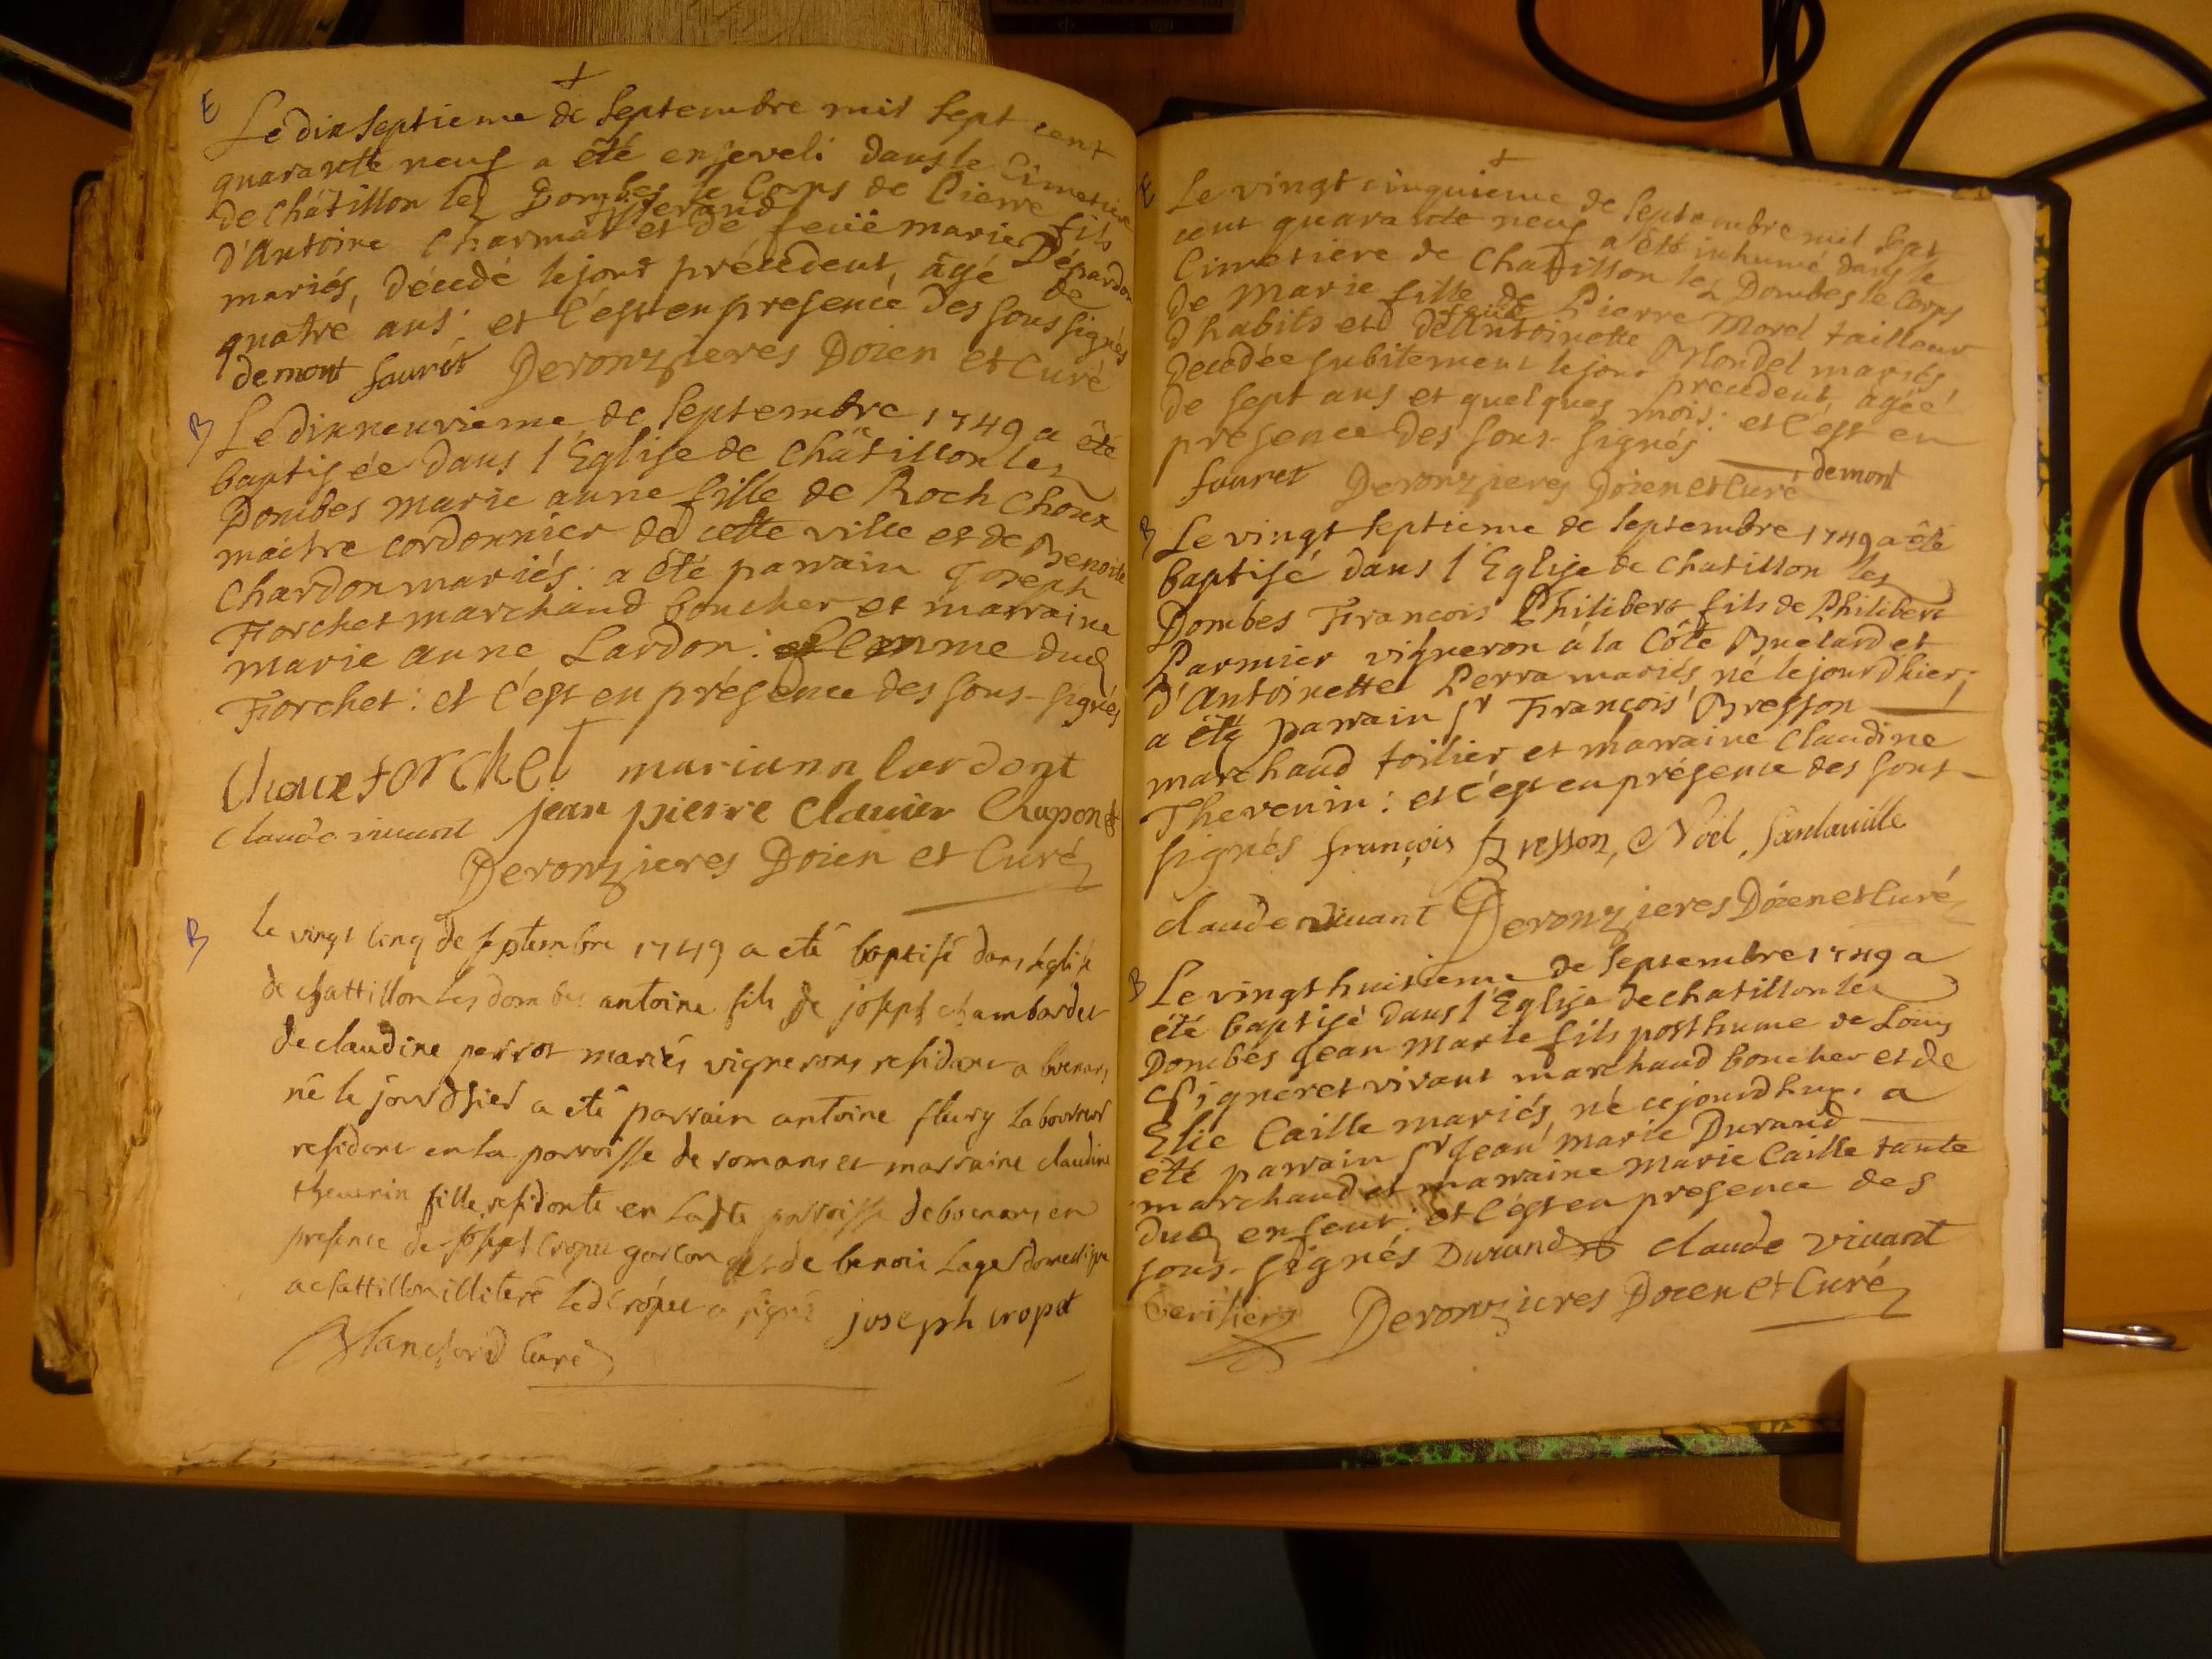 E
+
Le dix septieme de septembre mil sept cent
quarante neuf a été enseveli dans le Cimetiere
de Châtillon lez Dombes le Corps de Pierre fils
tisserand
d'Antoine Charmat et de feüe marie Dépardon
mariés, décedé le jour précédent, âgé de
quatre ans: et c'est en presence des sous signés
demont fauret Deronzieres Doien et Curé
B
Le dixneuvieme de septembre 1749 a été
baptisée dans l'Eglise de Châtillon lez
Dombes marie anne fille de Roch Choux
maitre cordonnier de cette ville et de Benoite
Chardon mariés: a été parrain Joseph
Forchet marchand boucher et marraine
marie anne Lardon: femme dud
Forchet: et c'est en présence des sous-signés
Choux forchet mariann lardont
jean pierre clavier Chapon
claude vivant
Deronzieres Doien et Curé
B
le vingt cinq de septembre 1749 a eté baptisé dans léglise
de chattillon les dombes antoine fils de joseph chambard et
de claudine perrot mariés vignerons residans a buenans
né le jour dhier a eté parrain antoine fleury laboureur
residant en la parroisse de romans et marraine claudine
thevenin fille residante en ladte parroisse de buenans en
presence de joseph cropet garcon et de benoi Lager domestique
a chattillon illiteré led cropet a signé joseph cropet
Blanchard Curé
E
+
Le vingt cinquieme de septembre mil sept
cent quarante neuf a été inhumé dans le
Cimetiere de Chatillon lez Dombes le Corps
de Marie fille de Pierre Morel tailleur
feüe
d'habits et d'Antoinette Blondel mariés,
decedée subitement le jour precedent, agée
de sept ans et quelques mois: et c'est en
presence des sous-signés demont
fauret Deronzieres Doien et Curé
B
Le vingt septieme de septembre 1749 a été
baptisé dans l'Eglise de Chatillon les
Dombes Francois Philibert fils de Philibert
Parmier vigneron à la Côte Buelard et
d'Antoinette Perra mariés né le jour d'hier;
a été parrain sr François Bresson
marchand toilier et marraine Claudine
Thevenin: et c'est en présence des sous-
signés françois Bresson, Noël, Sanlaville
claude vivant Deronzieres Doien et Curé
B
Le vingt huitieme de septembre 1749 a
été baptisé dans l'Eglise de chatillon les
Dombes Jean Marie fils posthume de Loüis
Pigneret vivant marchand boucher et de
Elie Caille mariés, né cejourdhuy. a
été parrain sr Jean Marie Durand
marchand et marraine Marie Caille tante
dud enfent: et c'est en presence des
sous-signés Durand claude vivant
Deronzieres Doien et Curé